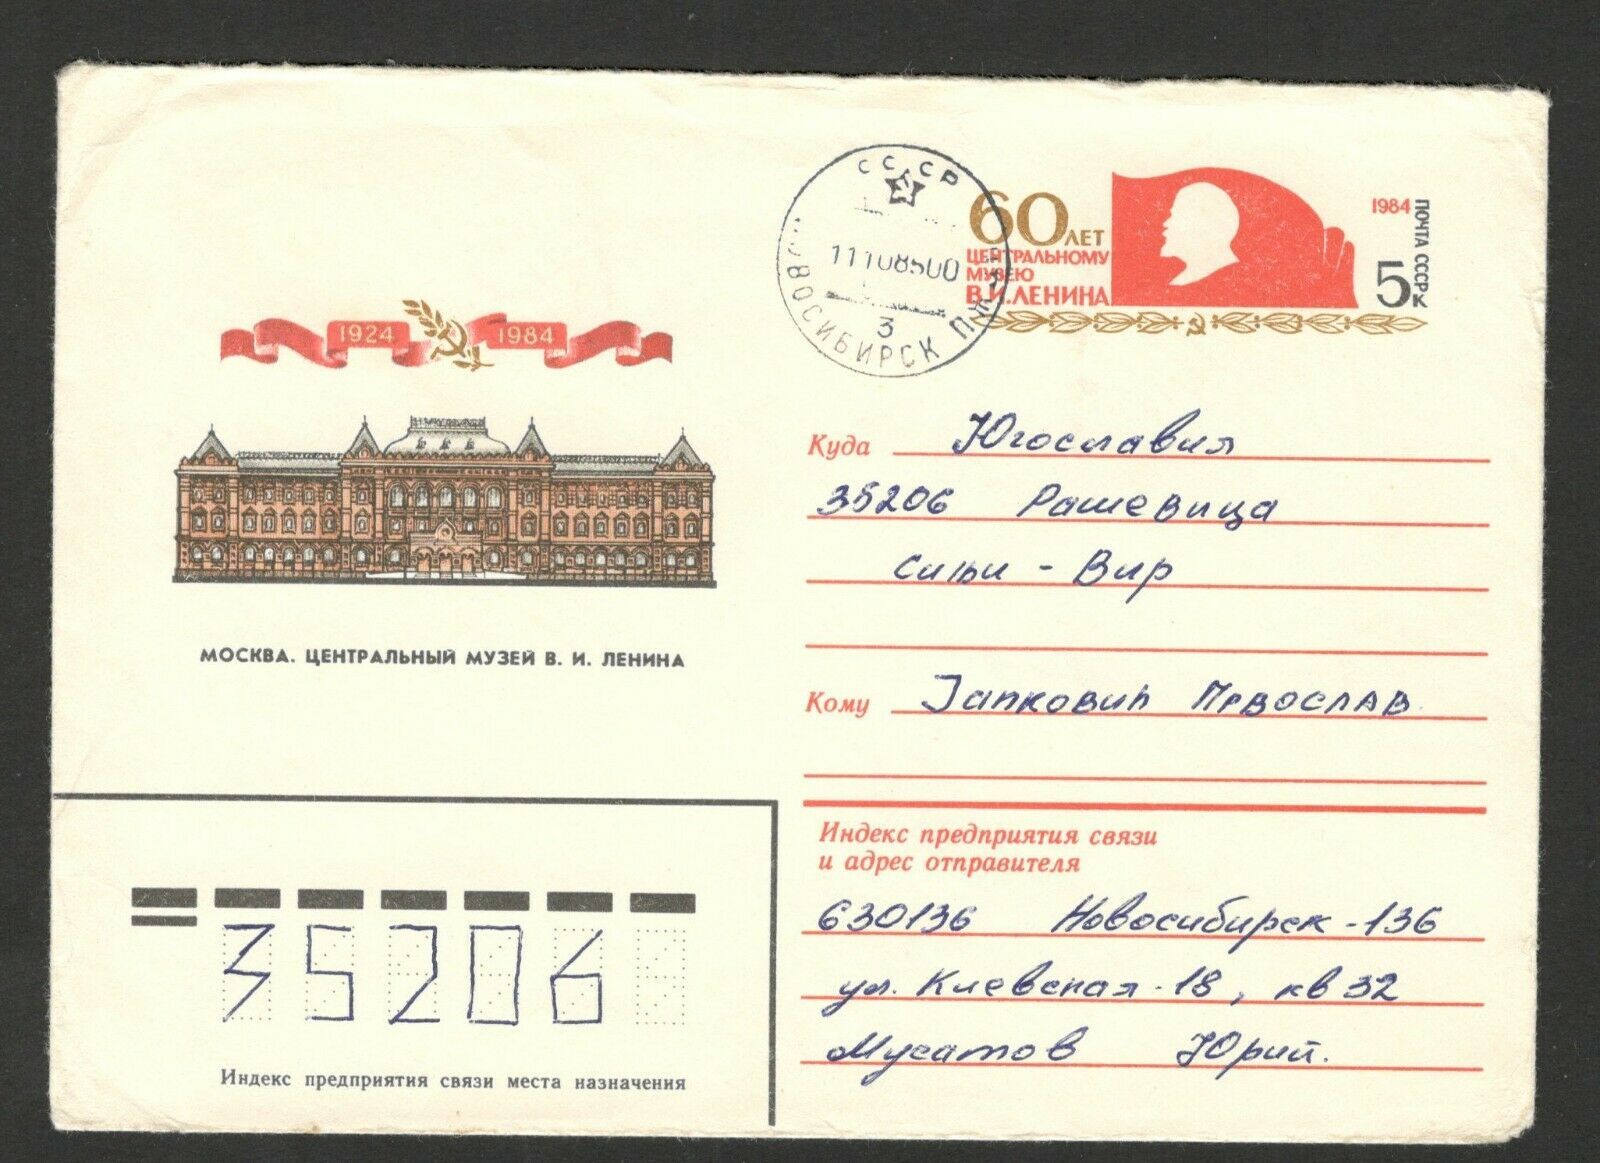 СССР
11108500
3
НОВОСИБИРСК
60 ЛЕТ
ЦЕНТРАЛЬНОМУ
МУЗЕЮ
В.И.ЛЕНИНА
1984
ПОЧТА СССР
5к
1924 1984
МОСКВА. ЦЕНТРАЛЬНЫЙ МУЗЕЙ В. И. ЛЕНИНА
Куда Югославия
35206 Рашевица
Сињи - Вир
Кому Јапковић Првослав
Индекс предприятия связи
и адрес отправителя
630136 Новосибирск-136
ул. Киевская-18, кв 32
Мусатов Юрий.
35206
Индекс предприятия связи места назначения